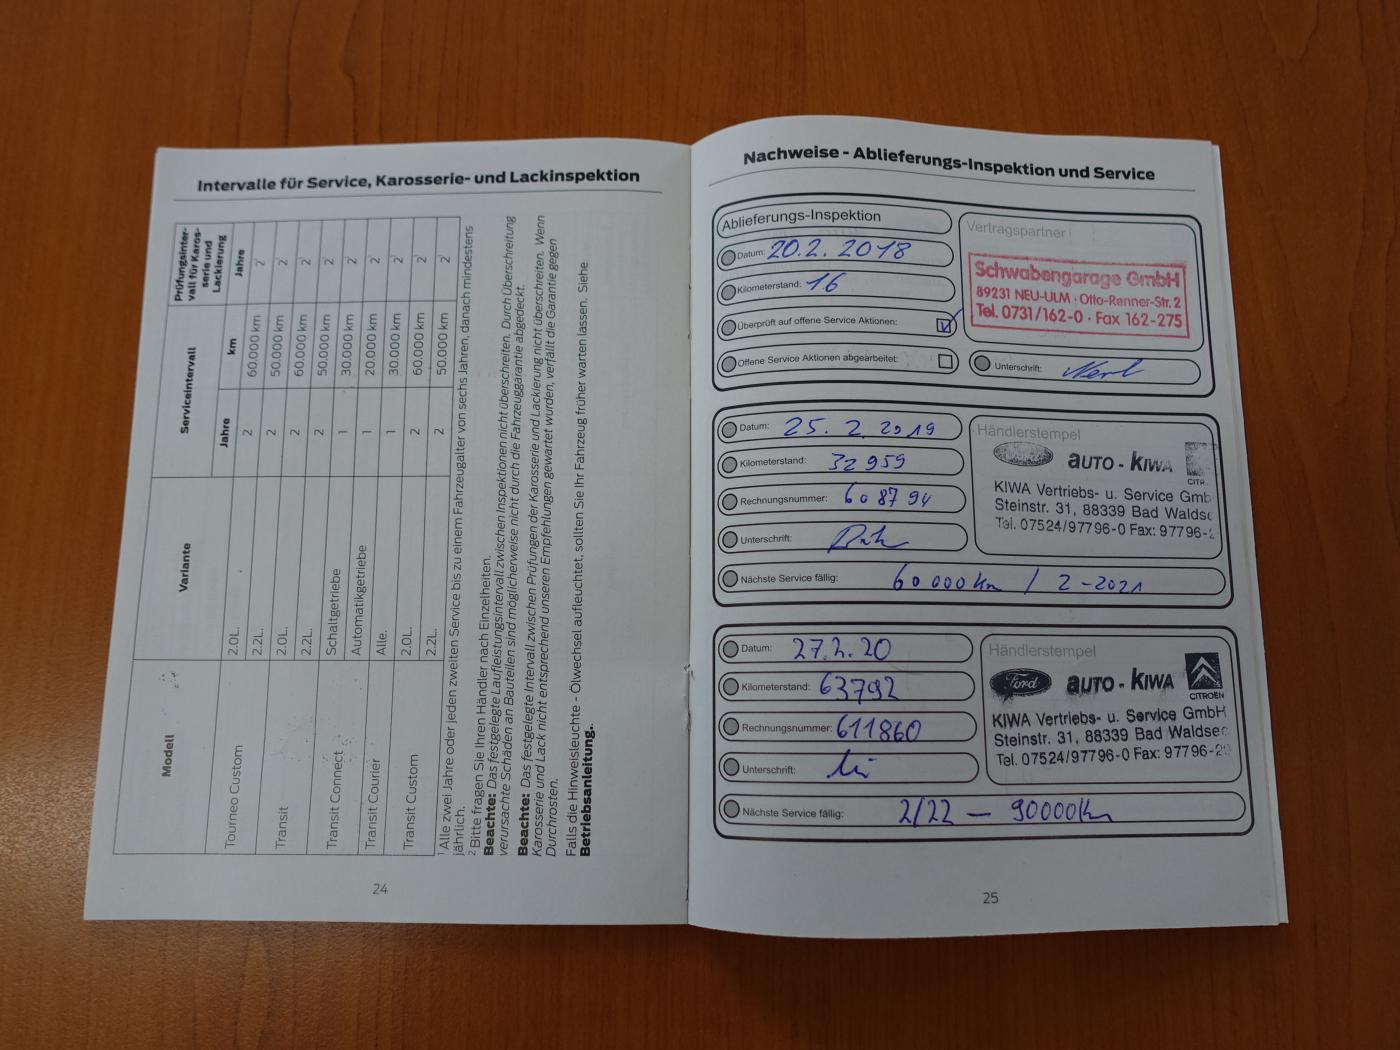 Intervalle für Service, Karosserie- und Lackinspektion
Modell Variante Serviceintervall Prüfungsinter-
vall für Karos-
serie und
Lackierung
Jahre km Jahre
Tourneo Custom 2.0L. 2 60.000 km 2
2.2L. 2 50.000 km 2
Transit 2.0L. 2 60.000 km 2
2.2L. 2 50.000 km 2
Transit Connect Schaltgetriebe 1 30.000 km 2
Automatikgetriebe 1 20.000 km 2
Transit Courier Alle. 1 30.000 km 2
Transit Custom 2.0L. 2 60.000 km 2
2.2L. 2 50.000 km 2
1 Alle zwei Jahre oder jeden zweiten Service bis zu einem Fahrzeugalter von sechs Jahren, danach mindestens
jährlich.
2 Bitte fragen Sie Ihren Händler nach Einzelheiten.
Beachte: Das festgelegte Laufleistungsintervall zwischen Inspektionen nicht überschreiten. Durch Überschreitung
verursachte Schäden an Bauteilen sind möglicherweise nicht durch die Fahrzeuggarantie abgedeckt.
Beachte: Das festgelegte Intervall zwischen Prüfungen der Karosserie und Lackierung nicht überschreiten. Wenn
Karosserie und Lack nicht entsprechend unseren Empfehlungen gewartet wurden, verfällt die Garantie gegen
Durchrosten.
Falls die Hinweisleuchte - Ölwechsel aufleuchtet, sollten Sie Ihr Fahrzeug früher warten lassen. Siehe
Betriebsanleitung.
24
Nachweise - Ablieferungs-Inspektion und Service
Ablieferungs-Inspektion
Datum: 20.2.2018
Kilometerstand: 16
Überprüft auf offene Service Aktionen:
Offene Service Aktionen abgearbeitet:
Vertragspartner
Schwabengarage GmbH
89231 NEU-ULM · Otto-Renner-Str. 2
Tel. 0731/162-0 · Fax 162-275
Unterschrift:
Datum: 25.2.2019
Kilometerstand: 32959
Rechnungsnummer: 608794
Unterschrift:
Nächste Service fällig: 60000km / 2-2021
Händlerstempel
AUTO - KIWA
CITR
KIWA Vertriebs- u. Service Gmb
Steinstr. 31, 88339 Bad Waldse
Tel. 07524/97796-0 Fax: 97796-2
Datum: 27.2.20
Kilometerstand: 63792
Rechnungsnummer: 611860
Unterschrift:
Nächste Service fällig: 2/22 — 90000km
Händlerstempel
Ford AUTO - KIWA
CITROËN
KIWA Vertriebs- u. Service GmbH
Steinstr. 31, 88339 Bad Waldsec
Tel. 07524/97796-0 Fax: 97796-29
25